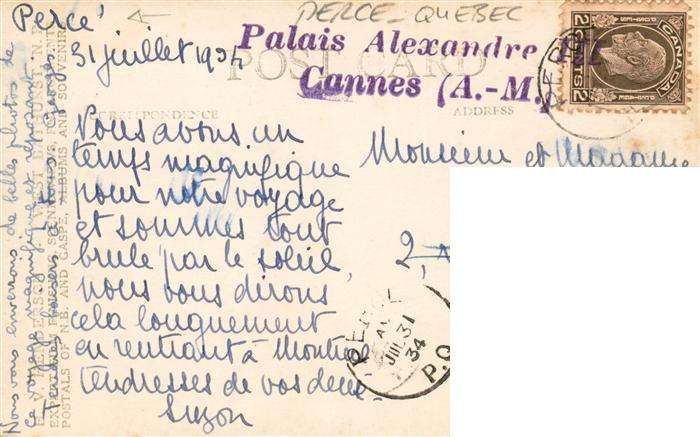 Percé
31 juillet 1934
PERCE - QUEBEC
Palais Alexandre III
Cannes (A.-M.)
POST CARD
CORRESPONDENCE
ADDRESS
CANADA
2 CENTS 2
Monsieur et Madame
2
Nous avons un
temps magnifique
pour notre voyage
et sommes tout
brulé par le soleil,
nous vous dirons
cela longuement
en rentrant à Montreal
tendresses de vos deux
Suzon
PERCE
AM
JUL 31
34
P.Q
Nous vous enverrons de belles photos de
ce voyage magnifique et
Tendres baisers à tous Georges
POSTALS OF N.B. AND GASPE, ALBUMS AND SOUVENIR